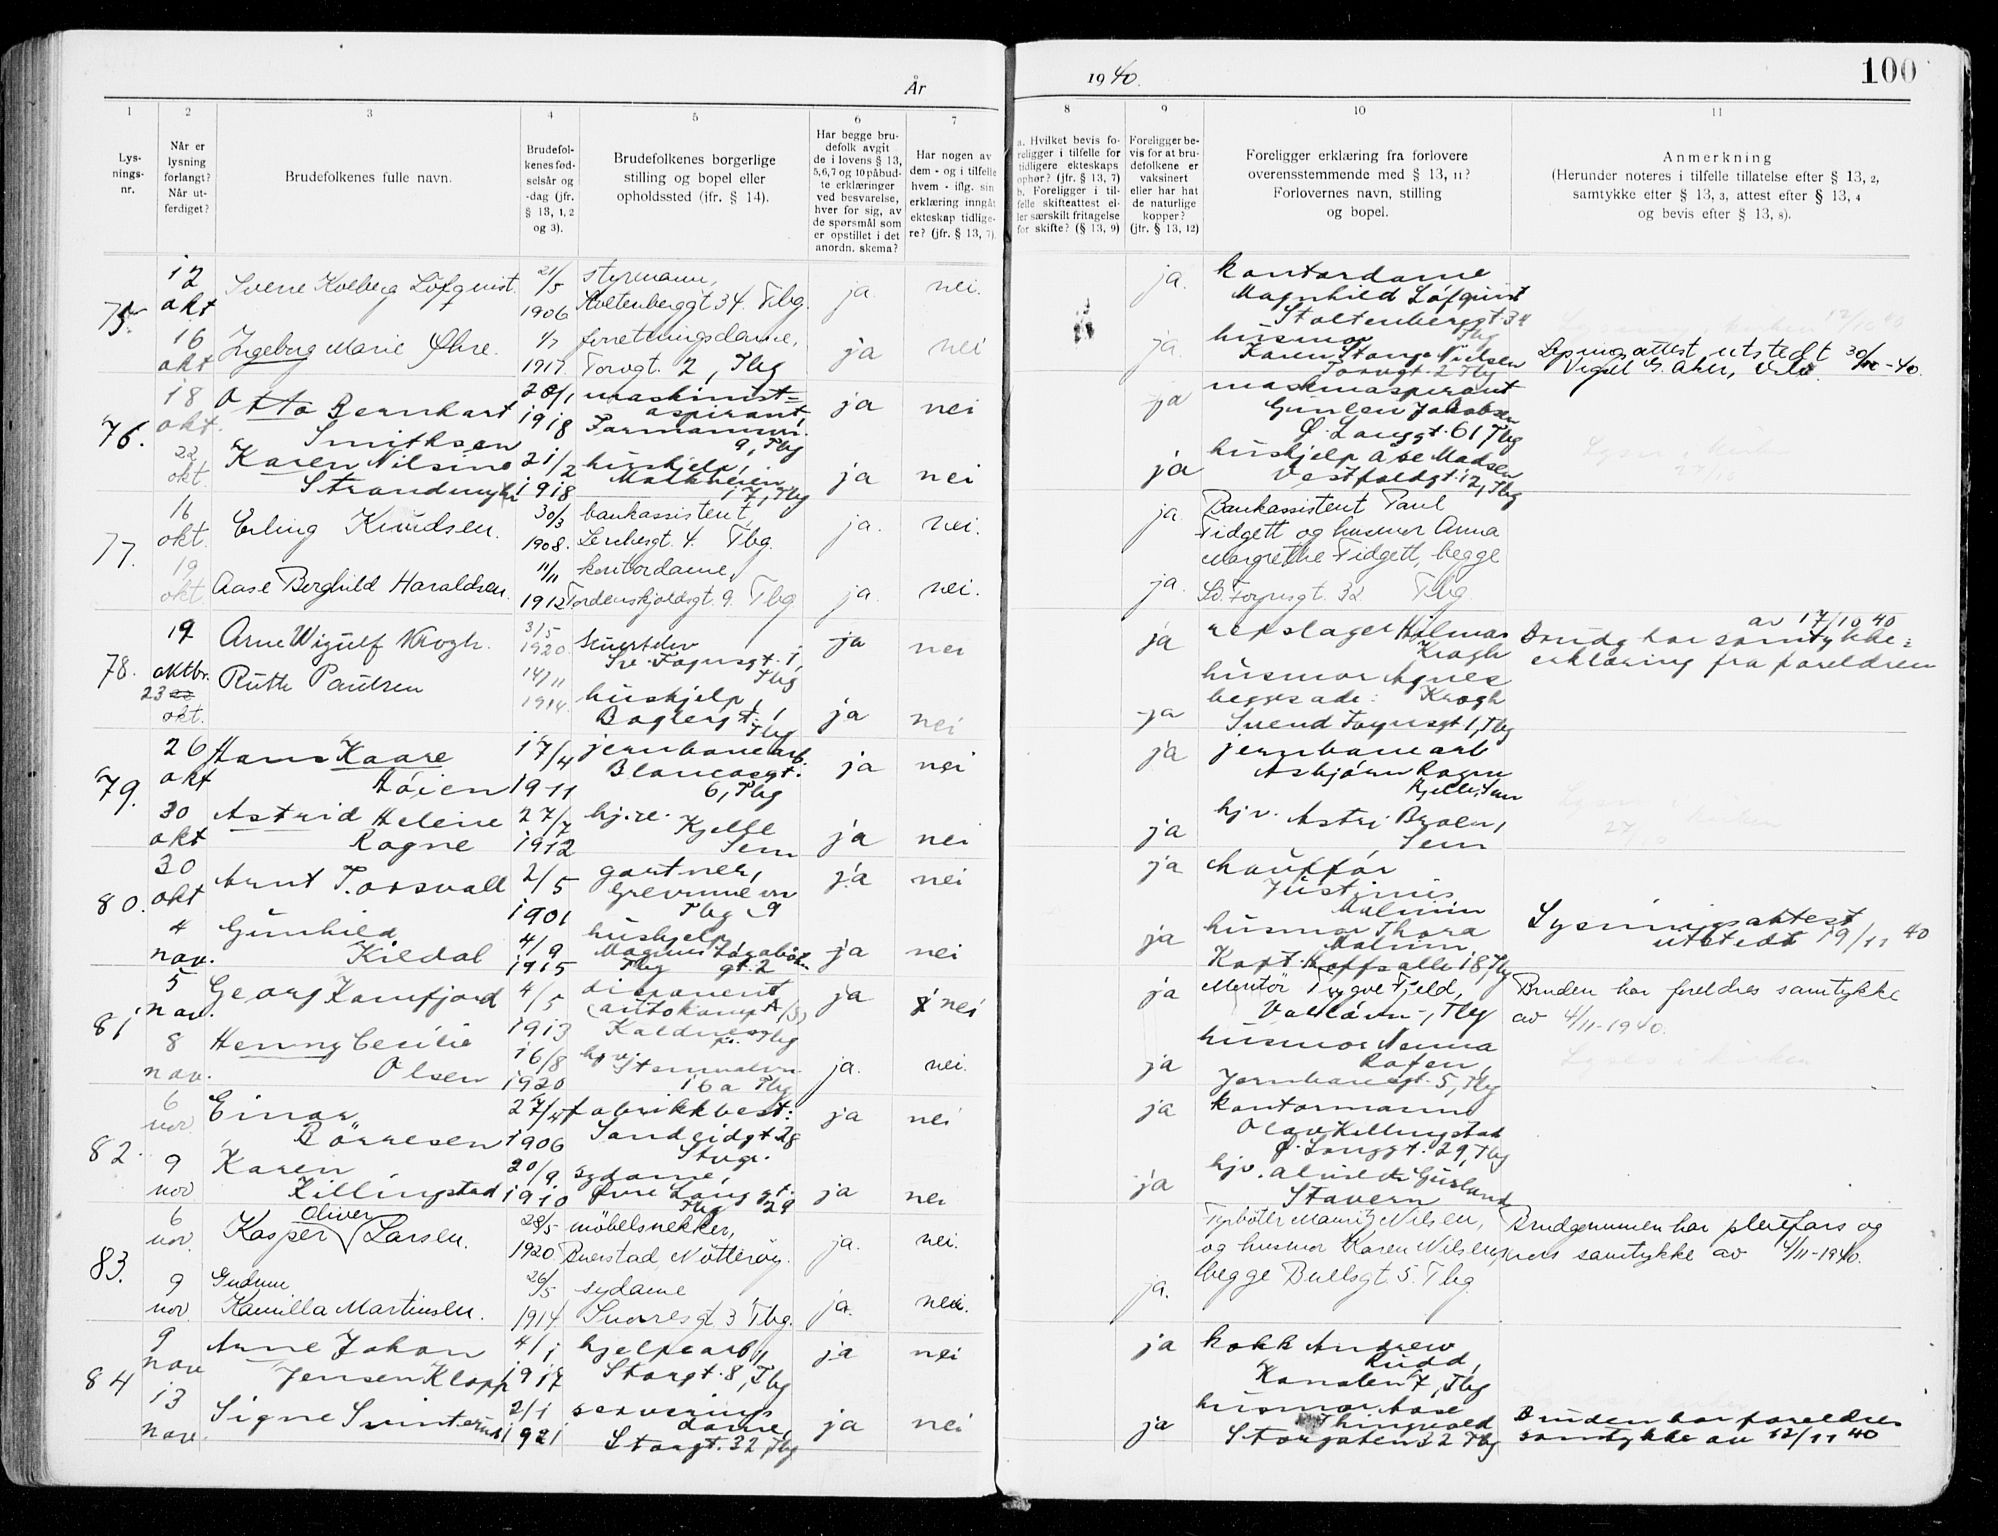 År
1940.
100
1
2
3
4
5
6
7
8
9
10
11
Lys-
nings-
nr.
Når er
lysning
forlangt?
Når ut-
ferdiget?
Brudefolkenes fulle navn.
Brudefol-
kenes fød-
selsår og
-dag (jfr.
§ 13, 1, 2
og 3).
Brudefolkenes borgerlige
stilling og bopel eller
opholdssted (jfr. § 14).
Har begge bru-
defolk avgit
de i lovens § 13,
5, 6, 7 og 10 påbud-
te erklæringer
ved besvarelse,
hver for sig, av
de spørsmål som
er opstillet i det
anordn. skema?
Har nogen av
dem - og i tilfelle
hvem - iflg. sin
erklæring inngåt
ekteskap tidlige-
re? (jfr. § 13, 7).
a. Hvilket bevis fo-
religger i tilfelle for
tidligere ekteskaps
ophør? (jfr. § 13, 7)
b. Foreligger i til-
felle skifteattest el-
ler særskilt fritagelse
for skifte? (§ 13, 9)
Foreligger be-
vis for at bru-
defolkene er
vaksinert
eller har hat
de naturlige
kopper?
(jfr. § 13, 12)
Foreligger erklæring fra forlovere
overensstemmende med § 13, 11?
Forlovernes navn, stilling
og bopel.
Anmerkning
(Herunder noteres i tilfelle tillatelse efter § 13, 2,
samtykke efter § 13, 3, attest efter § 13, 4
og bevis efter § 13, 8).
75.
12
okt
Sverre Kolberg Löfqvist.
21/5
1906
styrmann,
Stoltenberggt 34. Tbg.
ja.
nei.
ja.
kontordame
Magnhild Löfqvist
Stoltenberggt. 34
Tbg
16
okt
Ingeborg Marie Øhre.
1917.
forretningsdame,
Torvgt. 2, Tbg
ja
nei
ja
husmor
Karen Stange Nielsen
Torvgt. 2 Tbg
Lysning i kirken 12/10 40
Lysningsattest utstedt 30/10-40.
76.
18
okt.
Otto Bernhart
Smithsen
20/1
1918
maskinist=
aspirant
Farmannsv.
9, Tbg
ja
nei
ja
maskinaspirant
Gunleu Jakobsen
Ø. Langgt. 61 Tbg
22
okt.
Karen Nilsine
Strandmyhr
21/2
1918
hushjelp,
17, Tbg
ja
nei
ja
hushjelp Åse Madsen
Vestfoldgt. 12, Tbg
27/10
77.
16
okt.
Erling Knudsen.
30/3
1908.
bankassistent,
Lerchesgt. 4. Tbg.
ja.
nei.
ja.
Bankassistent Paul
Fidgett og husmor Anna
Margrethe Fidgett, begge
Sv. Foynsgt. 32. Tbg.
19
okt.
Aase Borghild Haraldsen.
11/11
1912
kontordame,
Tordenskjoldsgt. 9. Tbg
ja.
nei.
ja.
78.
19
oktbr.
Arne Wigulf Krogh.
3/5
1920.
stuertelev
Sv. Foynsgt. 1,
Tbg
ja
nei
ja
repslager Hilmar
Krogh
husmor Agnes
Krogh
begges adr:
Svend Foynsgt 1, Tbg
av 17/10 40
Brudg har samtykke=
erklæring fra foreldrene
23
okt.
Ruth Paulsen
14/11
1914.
hushjelp,
Baglergt. 1
Tbg
ja
nei
ja
79.
26
okt
Hans Kaare
Løien
17/4
1911
jernbanearb.
Blancasgt.
6, Tbg
ja
nei
ja
jernbanearb
Asbjørn Rogne
Kjelle, Sem
30
okt
Astrid Helene
Rogne
27/7
1912
hj.v.
Kjelle
Sem
ja
nei
ja
hjv. Astri Broen,
Sem
27/10
80.
30
okt
Arnt Torsvall
2/5
1901
gartner,
Grevinnevn
Tbg 9
ja
nei
ja
chauffør
Justinus
Malmin
4
nov.
Gunhild
Kildal
4/9
1915
hushjelp
Magnus Lagabøter
Tbg gt. 2
ja
nei
ja
husmor Thora
Malmin
Kapt. Hoffsalle 18, Tbg
Lysningsattest
utstedt 19/11 40
81
5
nov.
Georg Kamfjord
4/5
1913
disponent
(autokomp A/S)
Kaldnes
Tbg
ja
nei
ja
Montør Trygve Fjeld,
Valløvn-, Tbg
Bruden har foreldres samtykke
av 4/11-1940.
8
nov.
Henny Cecilie
Olsen
16/8
1920
16a Tbg
ja.
nei.
ja
husmor Nanna
Rofen,
Jernbanegt. 5, Tbg
Lysn. i kirken
82.
6
nov.
Einar
Börresen
27/4
1906
fabrikkbest:
Sandeidgt 28
Stvgr.
ja
nei
ja
kontormann
Olav Killingstad
Ø. Langgt. 29, Tbg
9
nov
Karen
Killingstad
20/9
1910
sydame,
Øvre Langgt.
Tbg 29
ja
nei
ja
Stavern
83.
6
nov.
Oliver
Kasper Larsen.
28/5
1920
möbelsnekker,
Buerstad, Nötteröy.
ja.
nei.
Fyrböter Mauritz Nilsen,
og husmor Karen Nilsen,
begge Bullsgt. 5. Tbg.
Brudgommen har pleiefars og
mors samtykke av 4/11-1940.
9
nov
Gudrun
Kamilla Martinsen.
26/5
1914
sydame
Snorresgt 3 Tbg.
ja.
nei.
ja.
84
9
nov
Arne Johan
Jensen Klopp
4/1
1917
hjelpearb,
Storgt. 8, Tbg
ja
nei
ja
kokk Andrew
Rudd,
Kanalen 7, Tbg
13
nov.
Signe Svinterud
2/1
1921
serverings
dame,
Storgt. 32 Tbg
ja
nei
ja
husmor Aase
Thingvold
Storgaten 32 Tbg
Bruden har foreldres
samtykke av 12/11 40